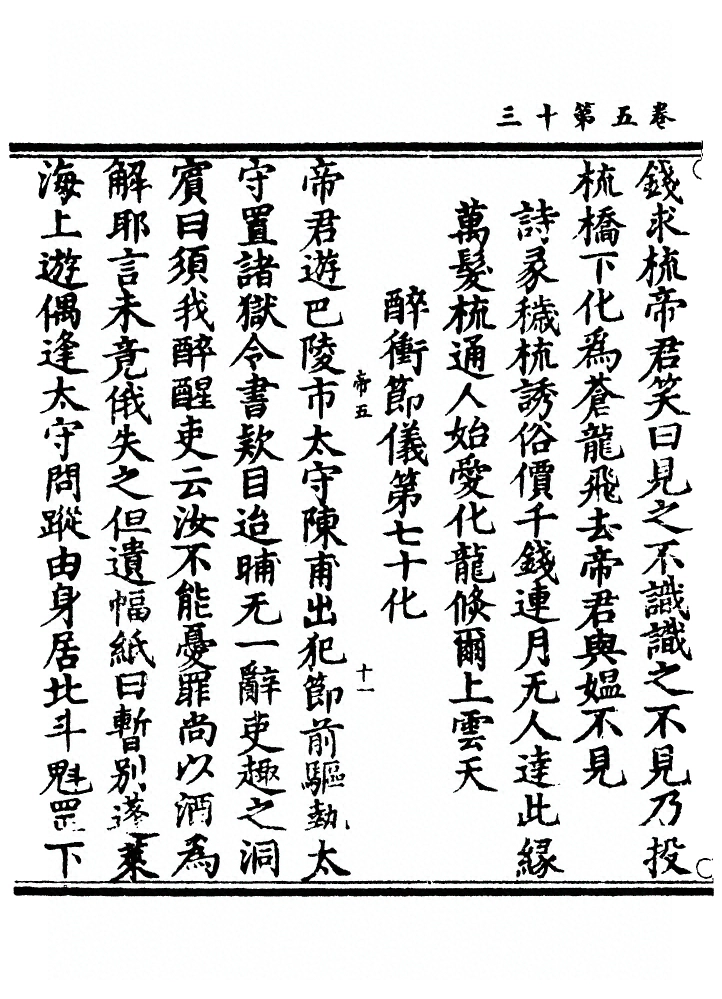 卷五第十三
錢求梳帝君笑曰見之不識識之不見乃投
梳橋下化爲蒼龍飛去帝君與媼不見
詩彖穢梳誘俗價千錢連月无人達此縁
萬髮梳通人始愛化龍倐爾上雲天
醉衝節儀第七十化
帝五
十一
帝君遊巴陵市太守陳甫出犯節前驅執太
守置諸獄令書欵目迨晡无一辭吏趣之洞
賔曰須我醉醒吏云汝不能憂罪尚以酒為
解耶言未竟俄失之但遺幅紙曰暫别蓬萊
海上遊偶逢太守問蹤由身居北斗魁罡下